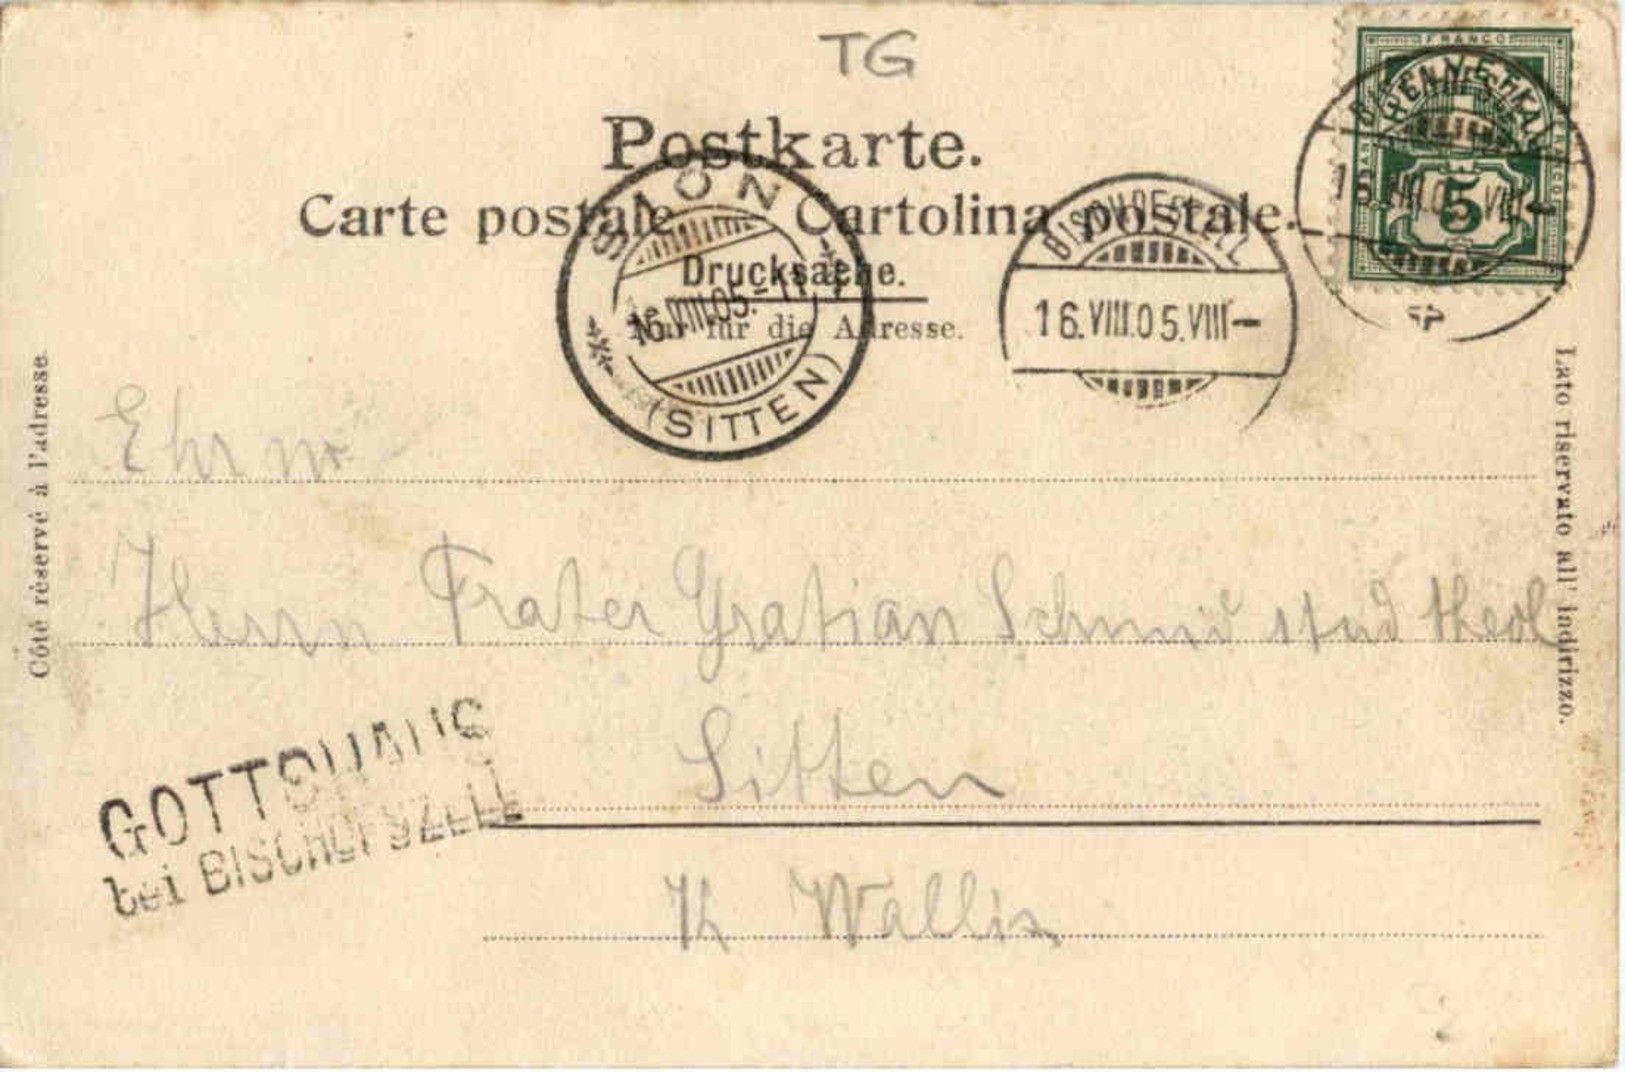 TG
Postkarte.
Carte postale Cartolina postale.
Drucksache.
Nur für die Adresse.
FRANCO
5
SION
16.VIII.05.-11
(SITTEN)
BISCHOFSZELL
16.VIII.05.VIII-
Côté réservé à l'adresse.
Lato riservato all' indirizzo.
Ehrw
Herrn Frater Gratian Schmid stud theol
Sitten
Kt Wallis
GOTTSHAUS
bei BISCHOFSZELL